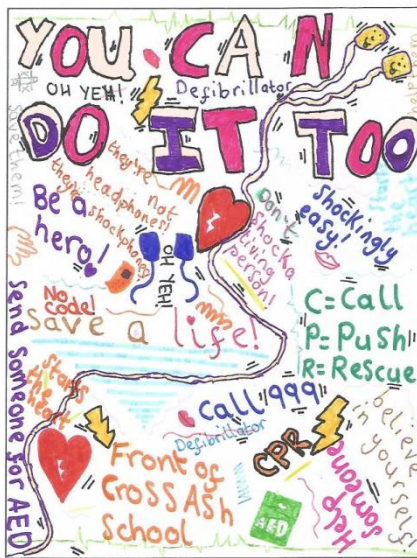 YOU CAN
OH YEH! Defibrillator
DO IT TOO
Save them!
they're not
headphones!
they're
shockphones
Be a
hero!
OH YEH!
Don't
shock a
living
person!
shockingly
easy!
No
code!
save a life!
C=Call
P=Push
R=Rescue
starts
the
heart
Call 999
Defibrillator
CPR
Front of
Cross Ash
School
AED
Help
someone
believe
in yourself!
Send someone for AED